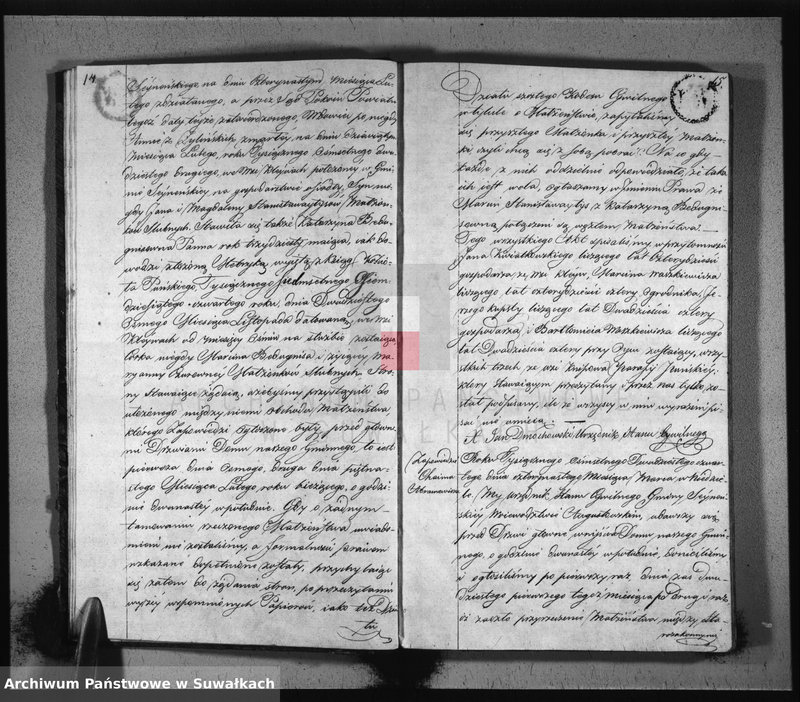 14
Seynenskiego, na dniu Czternastym Miesiąca Lu-
tego zdziałanego, a przez Sąd Pokoiu Powiatu
tegoż daty teyże zatwierdzonego Wdowiec po niegdy
Annie z zmarłey na dniu
Miesiąca Lutego, roku Tysiącznego Ośmsetnego dwu-
dziestego drugiego, we Wsi Kleywach położoney w Gmi-
nie Seynenskiey na gospodarstwie osiadły, Syn nie-
gdy Jana i Magdaleny Stanisławaytysow Małżon-
kow Slubnych. Stawiła się także Katarzyna Bebu-
gnisowna Panna rok trzydziesty maiąca, iak do-
wodzi złożona Metryka wyięta z ksiąg Kościo-
ła Puńskiego, Tysiącznego Siedmsetnego Dziewięć-
dziesiątego czwartego roku, dnia Dwudziestego
Osmego Miesiąca Listopada datowana, we Wsi
Kleywach od miesięcy Ośmiu na służbie zostaiąca
Córka niegdy Marcina Bebugnisa i żyiącey Ma-
ryanny Małżonkow Slubnych. Stro-
ny Stawaiące żądaią, ażebyśmy przystąpili do
ułożonego między niemi obchodu Małżeństwa
którego Zapowiedzi ogłoszone były przed główne-
mi Drzwiami Domu naszego Gminnego, to iest
pierwsza dnia Osmego, druga dnia piętna-
stego Miesiąca Lutego, roku bieżącego, o godzi-
nie dwunastey w południe. Gdy o żadnym
tamowaniu rzeczonego Małżeństwa uwiado-
mieni nie zostaliśmy, a formalności prawem
wskazane dopełnione zostały, przychylaiąc
się zatem do żądania stron, po przeczytaniu
wyżey wspomnionych Papierow, iako też Dzia-
łu
15
Działu szóstego Kodexu Cywilnego
w tytule o Małżeństwie, zapytaliśmy
się przyszłego Małżonka i przyszłey Małżon-
ki, czyli chcą się z sobą pobrać? Na co gdy
każde z nich oddzielnie odpowiedziało, iż taka
ich iest wola, ogłaszamy w Imieniu Prawa, że
Marcin Stanisławaytys z Katarzyną Bebugni-
sowną połączeni są węzłem Małżeństwa.
Tego wszystkiego Akt spisaliśmy w przytomności
Jana Kwiatkowskiego liczącego lat czterdzieści
gospodarza ze Wsi Kleyw, Marcina Waszkiewicza
liczącego lat czterdzieści cztery Ogrodnika, Je-
rzego liczącego lat Dwadzieścia cztery
gospodarza, i Bartłomieia Maszkiewicza liczącego
lat Dwadzieścia cztery przy Oycu zostaiący, wszy-
skich trzech ze wsi Krasnowa Parafii
który Stawaiącym przeczytany i przez nas tylko, zo-
stał podpisany, ile że wszyscy w nim wyrażeni pi-
sać nie umieią.
X. Jan Dmochowski Urzędnik Stanu Cywilnego
Zapowiedzi
Chaima
Abramowicza
Roku Tysiącznego Ośmsetnego Dwudziestego czwar-
tego dnia czternastego Miesiąca Marca w Niedzie-
lę, My Urzędnik Stanu Cywilnego Gminy Seynen-
skiey w Woiewodztwie Augustowskim, udawszy się
przed Drzwi główne wniyścia Domu naszego Gmin-
nego, o godzinie Dwunastey w południe, donieśliśmy
i ogłosiliśmy po pierwszy raz, dnia zaś dwu-
dziestego pierwszego tegoż miesiąca po drugi raz
iż zaszło przyrzeczenie Małżeństwa między Sta-
rozakonnym
PAŃSTWOWE
SUWAŁKACH
Archiwum Państwowe w Suwałkach